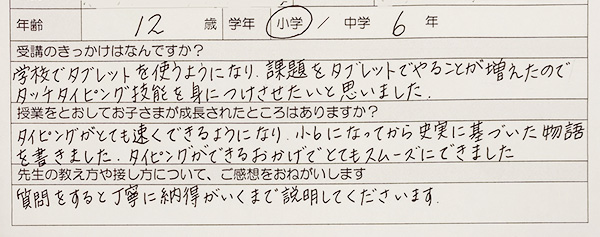 年齢 12 歳 学年 小学 / 中学 6 年
受講のきっかけはなんですか?
学校でタブレットを使うようになり、課題をタブレットでやることが増えたので
タッチタイピング技能を身につけさせたいと思いました。
授業をとおしてお子さまが成長されたところはありますか?
タイピングがとても速くできるようになり、小6になってから史実に基づいた物語
を書きました。タイピングができるおかげでとてもスムーズにできました
先生の教え方や接し方について、ご感想をおねがいします
質問をすると丁寧に納得がいくまで説明してくださいます。